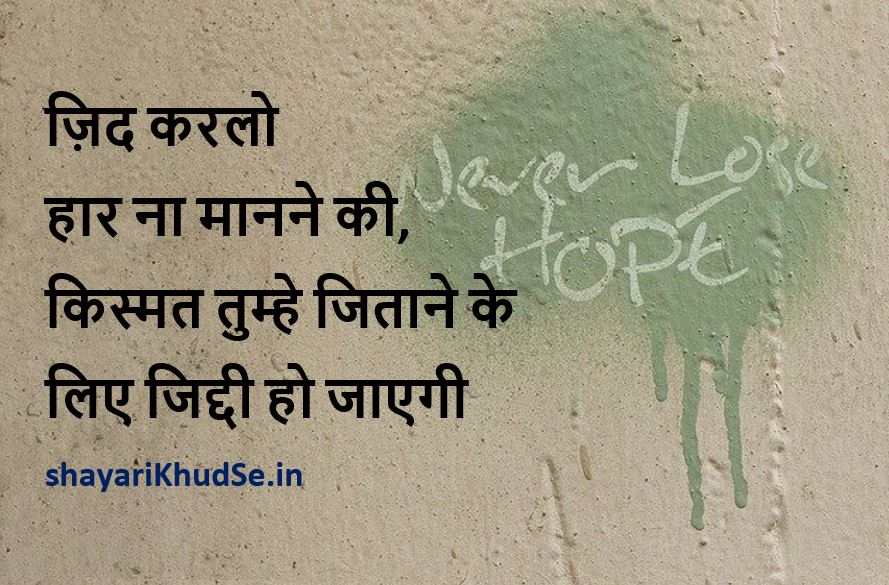 ज़िद करलो
हार ना मानने की,
किस्मत तुम्हे जिताने के
लिए जिद्दी हो जाएगी
shayariKhudSe.in
Never Lose
HOPE